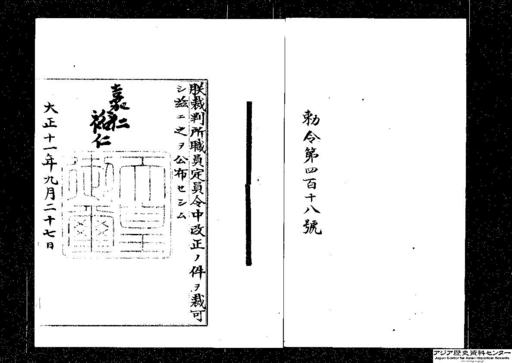 勅令第四百十八號
朕裁判所職員定員令中改正ノ件ヲ裁可
シ茲ニ之ヲ公布セシム
嘉仁
裕仁
大正十一年九月二十七日
天皇
御璽
アジア歴史資料センター
Japan Center for Asian Historical Records